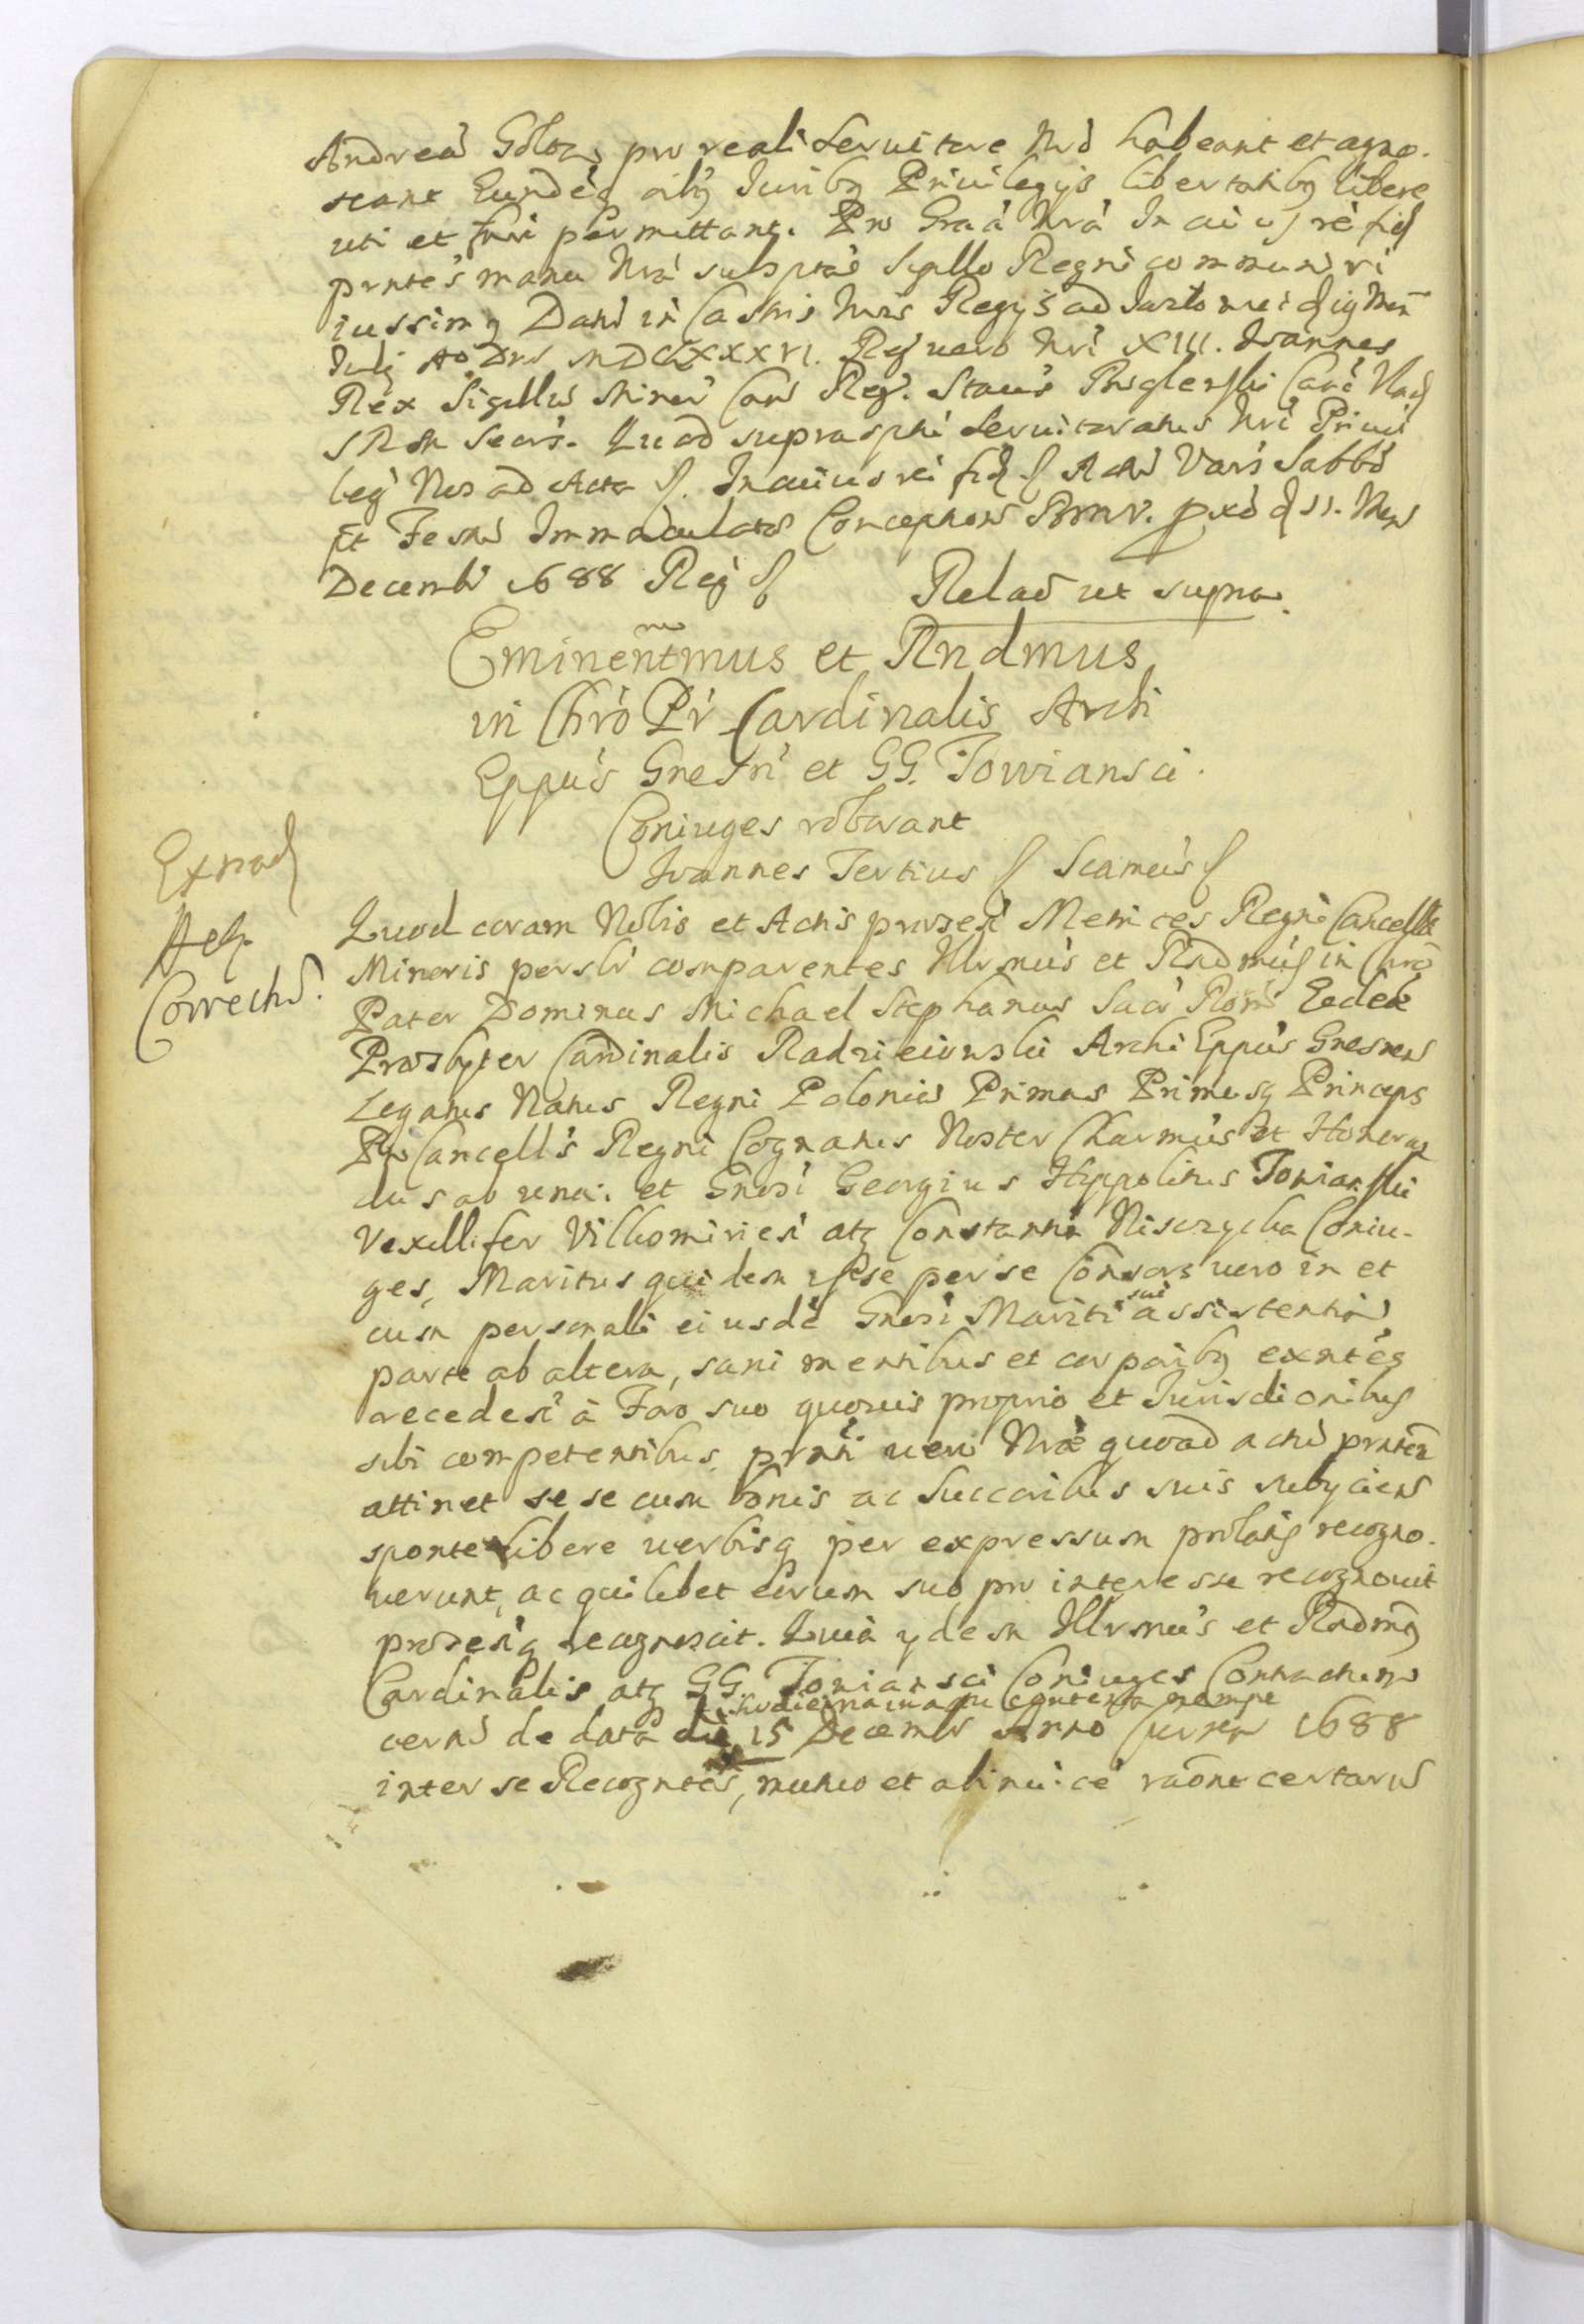 Andreā Goltz, pro reali Seruitore Nrō habeant et agno-
scant Eundēq oibq Juribq Priuilegijs libertatibq libere
uti et frui permittant. Pro Graā Nrā In cuiuſ rē fid
prntes manu Nrā subsptas Sigillo Regni communiri
iussimq Datū in Castris Nris Regijs ad
Julij Aō Dni MDCLXXXVI. Regſ uero Nri XIII. Joannes
Rex Sigillus Minor Canc Reg.
S R M Secrs. Quod suprasptū Seruitoratus Nri Priui
legi Nos ad Acta In cuius rei fid Actū Vars Sabbō
Festū Immaculatæ Conceptionis Bmv. pxō d 11. Mens
Decemb 1688 Reg
Relaō ut supra.
Eminentmus et Rndmus
in Chrō Pr Cardinalis Archi
Eppus Gnesn et GG. Towiansci
Coniuges roborant
Joannes Tertius Scamus
Extrad
Correctū.
Quod coram Nobis et Actis prnsesi Metrices Regni Cancellæ
Minoris persli comparentes Illrmus et Rndmus in Chro
Pater Dominus Michael Stephanus Sacr Rom Ecclæ
Prosbyter Cardinalis Radzieiowski Archi Eppus Gnesnens
Legatus Natus Regni Poloniæ Primas Primusq Princeps
Pro Cancells Regni Cognatus Noster Charmus et Honoran
dus ab una: et Gnosi Georgius Hyppolitus Towianski
Vexillifer Vilkomiriesi atq Constantia Niszczycka Coniu-
ges, Maritus quidem ipse per se Consors uero in et
cum personali eiusdē Gnosi Mariti sui assistentia
parte ab altera, sani mentibus et corparibq exntes
recedesi à Foro suo quouis proprio et Jurisdionibus
sibi competentibus, prnti uero Nræ quoad actū prnten
attinet se se cum bonis ac Succoribus suis subijciens
sponte libere uerbisq per expressum prolatis recogno-
uerunt, ac quilibet eorum suo pro interesse recognouit
prosesiq recognoscit. Quia ydem Illrmus et Rndmus
Cardinalis atq GG. Towiansci Coniuges Contractum
hodierna in contenta nempe
certū de data die 15 Decembr Anno currēn 1688
inter se Recogntes, mutuo et abinuicē raōne certarus